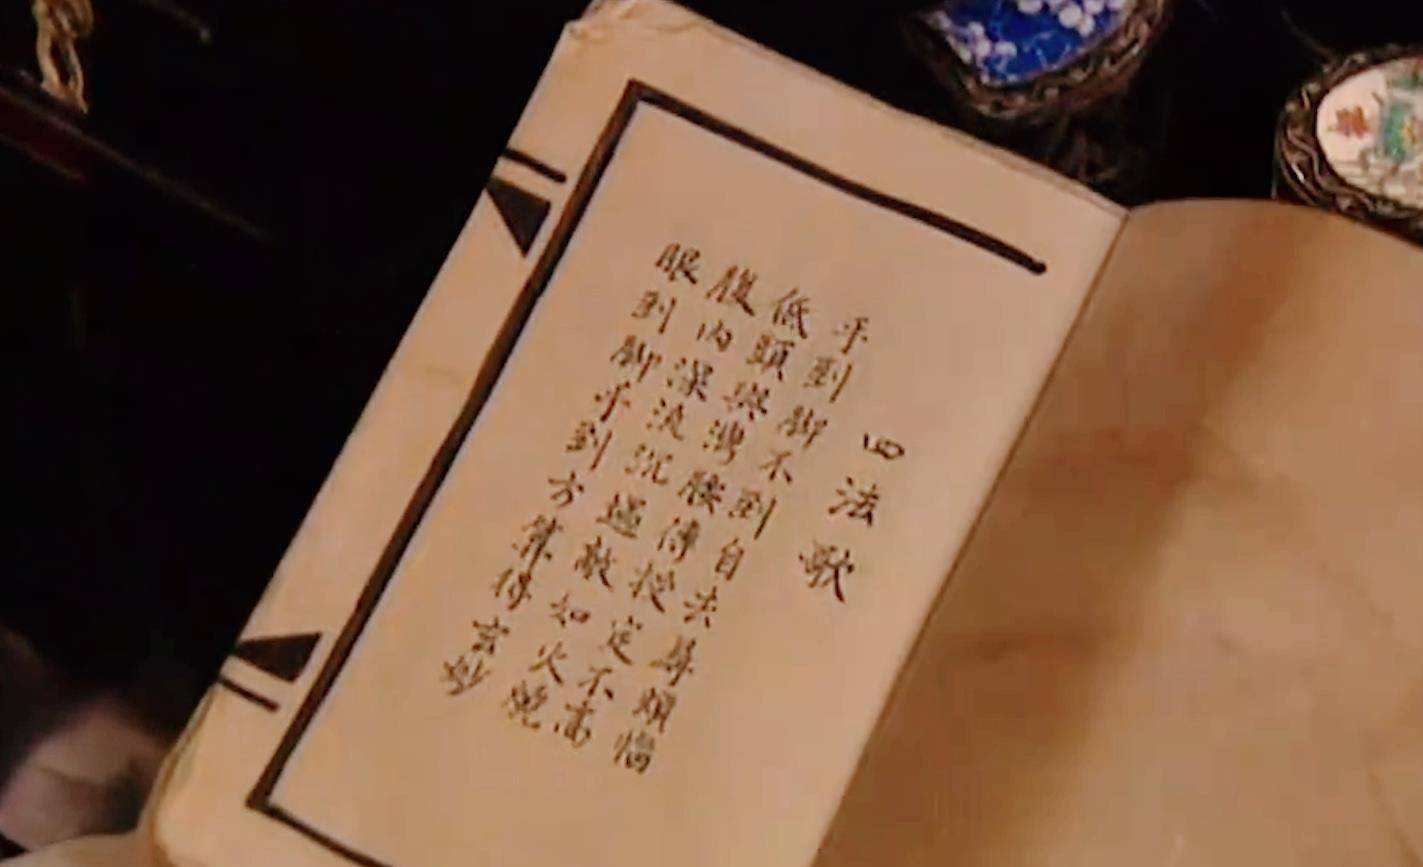 四法歌
手到脚不到自去尋煩惱
低頭與灣腰傳授定不高
腹内深流沉遇敵如火燒
眼到脚手到方算得玄妙